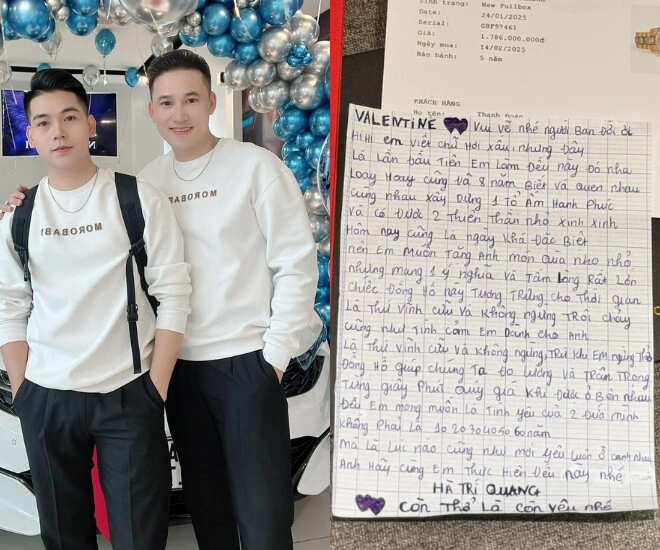 MOROBABY
MOROBABY
Tình trạng: New Fullbox
Date: 24/01/2025
Serial: G8F97461
Giá: 1.786.000.000đ
Ngày mua: 14/02/2025
Bảo hành: 5 năm
KHÁCH HÀNG
Họ tên: Thanh Đoàn
VALENTINE 💜💜 Vui vẽ nhé người Bạn Đời ơi
HiHi em Viết chữ Hơi xấu nhưng Đây
Là Lần đầu Tiên Em Làm Đều này Đó nha
Loay Hoay cũng Đã 8 năm Biết và quen nhau
cùng nhau xây Dựng 1 tổ Ấm Hạnh Phúc
Và có Được 2 Thiên Thần nhỏ xinh xinh
Hôm nay cũng là ngày Khá Đặc Biệt
nên Em Muốn Tặng Anh món quà nho nhỏ
nhưng mang 1 ý nghĩa và Tấm Lòng Rất Lớn
chiếc Đồng Hồ này Tượng Trưng cho Thời gian
Là Thứ Vĩnh cữu và Không ngừng Trôi chảy
cũng như Tình cảm Em Dành cho Anh
Là Thứ Vĩnh cữu và Không ngừng, Trừ Khi Em ngừng Thở
Đồng Hồ giúp chúng Ta Đo lường và Trân Trọng
Từng giây Phút Quý giá Khi Được ở Bên nhau
Đều Em mong muốn Là Tình yêu của 2 Đứa mình
Không Phải Là 10 20 30 40 50 60 năm
mà Là Lúc nào cũng như mới yêu Luôn ở cạnh nhau
Anh Hãy cùng Em Thực Hiện Đều này nhé
HÀ TRÍ QUANG
💜💜 Còn Thở Là còn yêu nhé